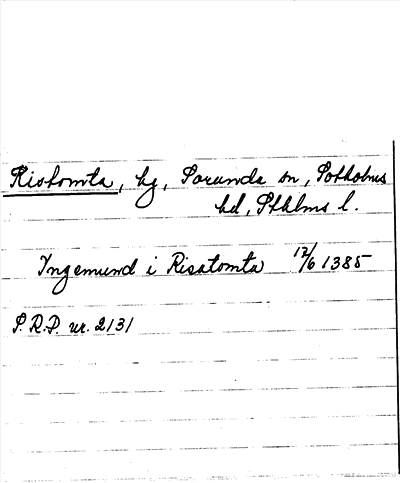 Ristomta, hg, Sorunda sn, Sotholms
hd, Sthlms l.
Ingemund i Risatomta 12/6 1385
S.R.P. nr. 2131